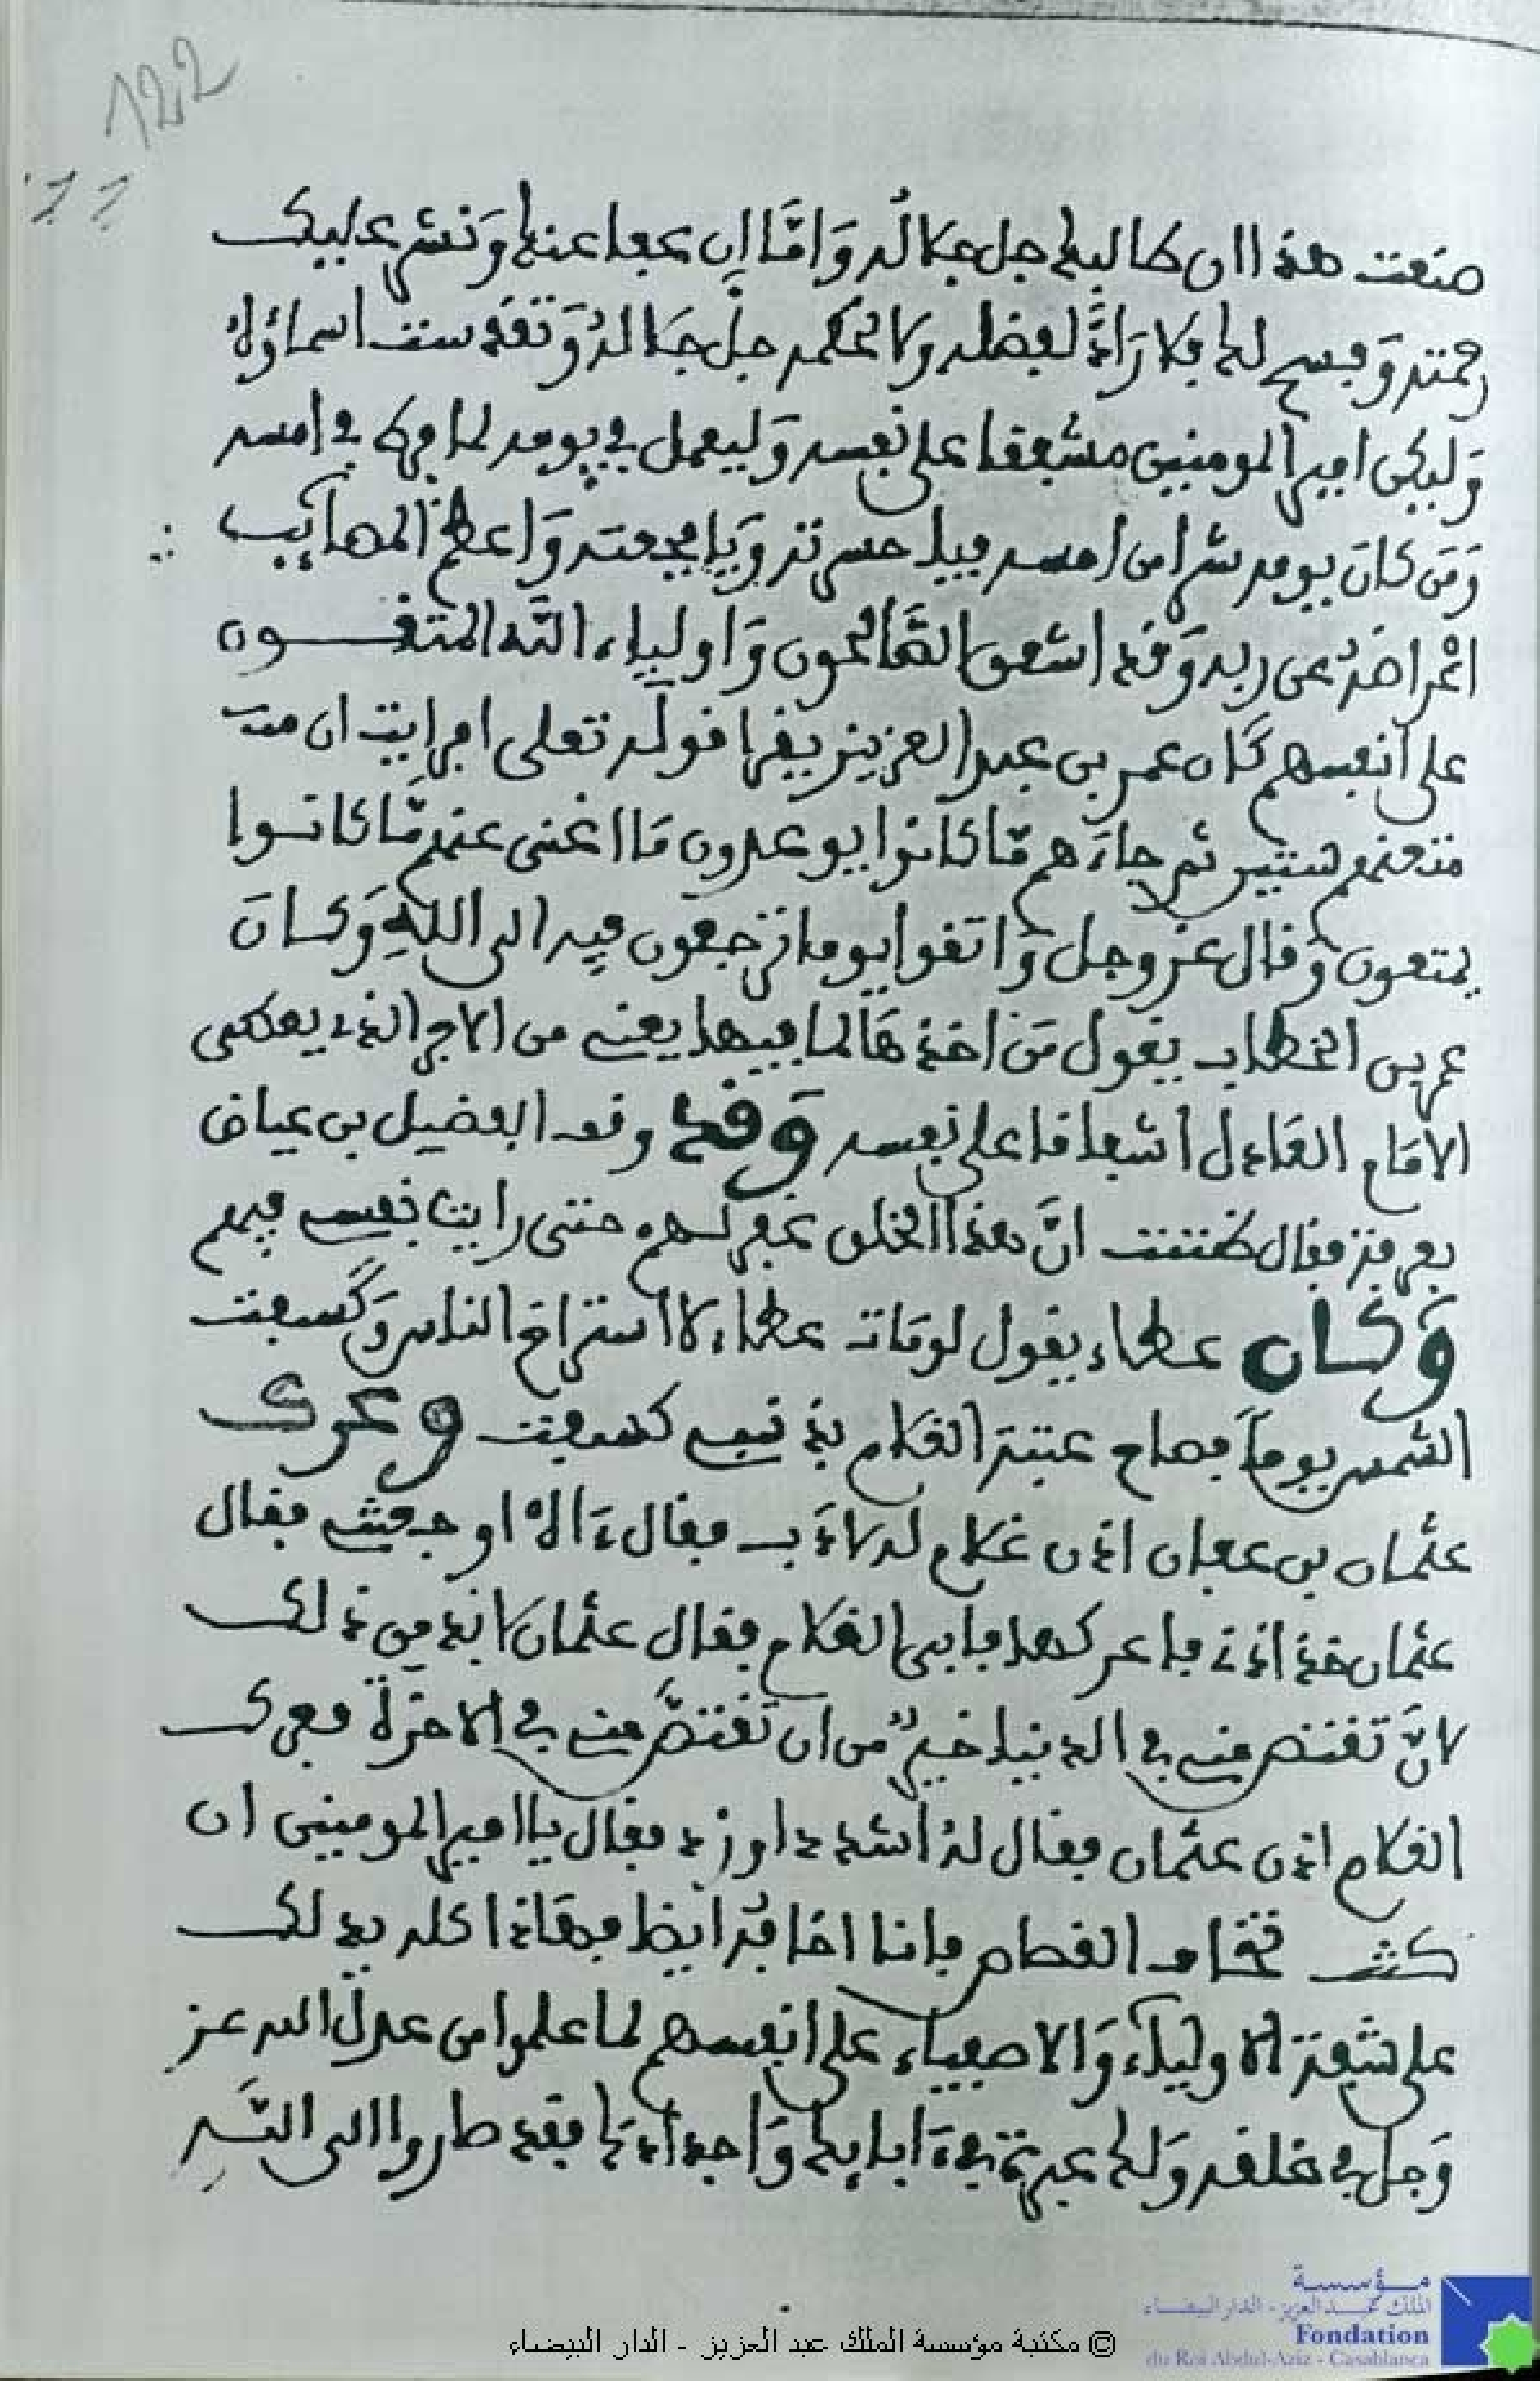 122
صنعت هذا ان طالبها جل جلاله وَامَّا ان عفا عنها وَنشر عليك
رحمته وَفسح لها فلا رَادَّ لفضله ولا لحكمه جلَّ جلاله وَتقدست اسماؤه
وَليكن امير المومنين مشفقا على نفسه وَليعمل في يومه لما فرط في امسه
وَمَن كانَ يومه شرا من امسه فيا حسرته وَيا فجعته وَاعظم المصائب
اعْراضه عن ربه وَقد اشفق الصَّالحون وَاولياء اللّه المتقـــون
على انفسهم كَان عمر بن عبد العزيز يقرا قوله تعلى افرايت ان مت
متعنهم سنين ثم جاءَهم مَّا كانوا يوعدون مَا اغنى عنهم مَّا كانـوا
يمتعون وَقال عز وجل وَاتقوا يوما ترجعون فيه الى اللهِ وَكـانَ
عمر بن الخطاب يقول مَن اخذهَا لما فيها يعني من الاجر الذي يعطى
الامَام العَادل اشفاقا على نفسه وَقد وقف الفضيل بن عياض
بعرفة فقال ظننت انَّ هذا الخلق غفر لـهم حتى رايت نفسي فيهم
وَكـان عطاء يقول لومَات عطاء لاستراحَ الناس وَكَسفت
الشمس يوماً فصاح عتبة الغلام بذنبي كسفت وعرك
عثمان بن عفان اذن غلام له لادَب فقال ءَاه اوجعتني فقال
عثمان خذ اذني فاعركها فابى الغلام فقال عثمان لابد من ذلك
لانَّ تقتص مني في الدنيا خيرٌ من ان تقتصَّ مني في الاخرَة فعرك
الغلام اذن عثمان فقال لهُ اشدد اوزد فقال يا امير المومنين ان
كنت تخاف القصاص فانا اخافُه ايضا فهَاذا كله يدلك
على شفقة الاولياء وَالاصفياء على انفسهم لما علموا من عدل الله عز
وَجل في خلقه وَلها عبرة تزيدَ ابابها وَاجدادَها فقد طاروا الى السَّـر
مـؤسسة
الملك عبد العزيز - الدار البيضاء
Fondation
du Roi Abdul-Aziz - Casablanca
© مكتبة مؤسسة الملك عبد العزيز - الدار البيضاء